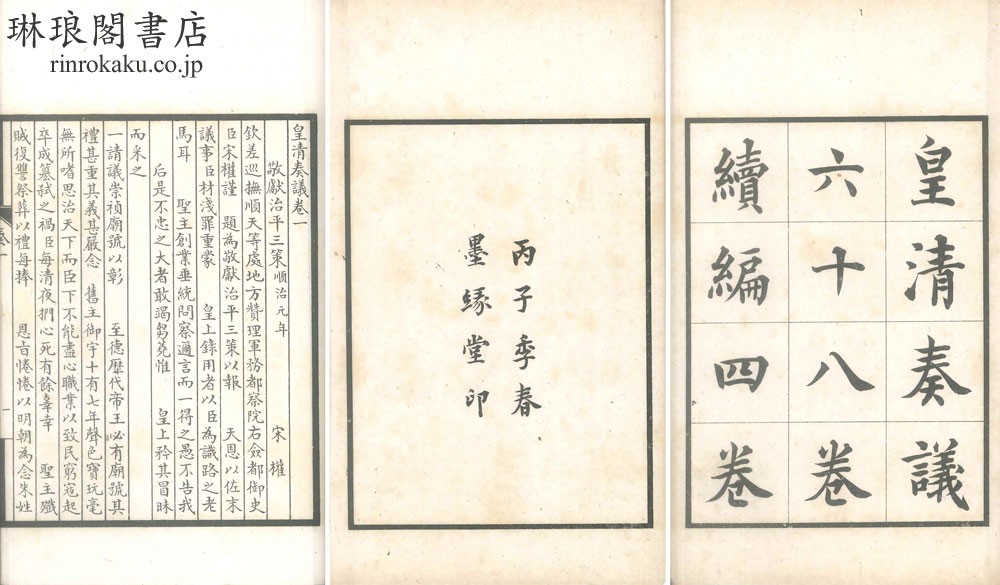 琳琅閣書店
rinrokaku.co.jp
皇清奏議
六十八卷
續編四卷
丙子季春
墨緣堂印
皇清奏議卷一
敬獻治平三策順治元年 宋權
欽差巡撫順天等處地方贊理軍務都察院右僉都御史
臣宋權謹 題為敬獻治平三策以報 天恩以佐末
議事臣材淺罪重蒙 皇上錄用者以臣為識路之老
馬耳 聖主創業垂統問察邇言而一得之愚不告我
后是不忠之大者敢竭芻蕘惟 皇上矜其冒昧
而采之
一請議崇禎廟號以彰 至德歷代帝王必有廟號其
禮甚重其義甚嚴念 舊主御宇十有七年聲色寶玩毫
無所嗜思治天下而臣下不能盡心職業以致民窮寇起
卒成篡弒之禍臣每清夜捫心死有餘辜幸 聖主殲
賊復讐祭葬以禮每捧 恩旨惓惓以明朝為念朱姓